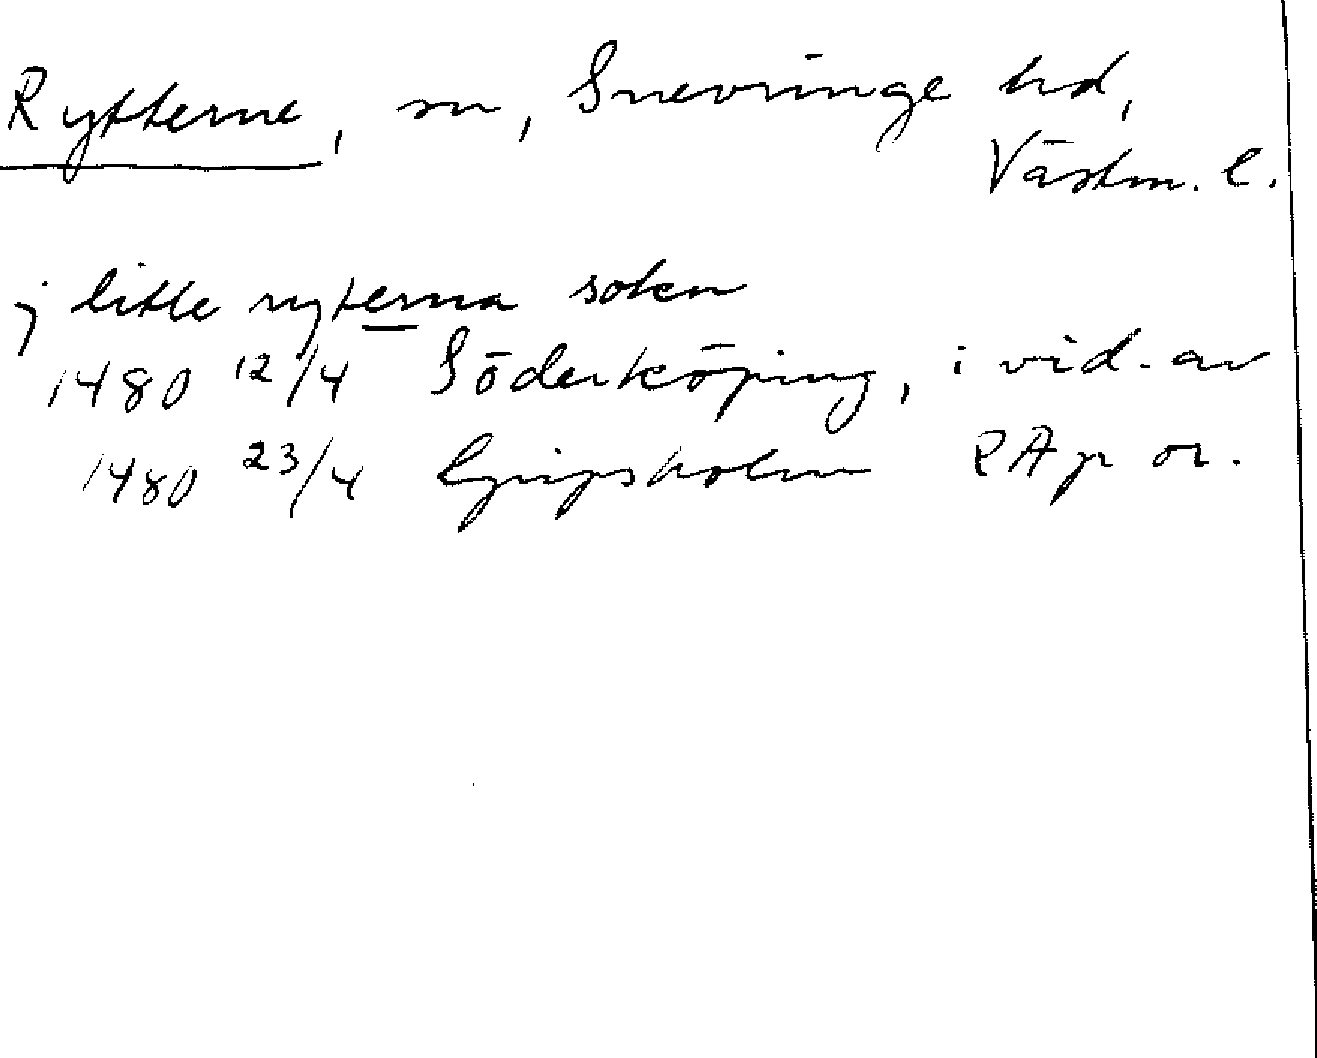 Rytterne, sn, Snevringe hd,
Västm. l.
j litle ryterna sokn
1480 12/4 Söderköping, i vid. av
1480 23/4 Gripsholm RAp or.